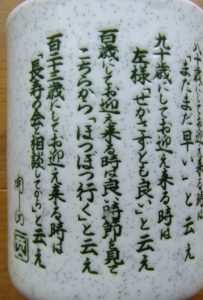 八十歳にしてお迎え来る時は
「まだまだ早い」と云え
九十歳にしてお迎え来る時は
左様「せかずとも良い」と云え
百歳にしてお迎え来る時は良い時節を見て
こちらから「ぼつぼつ行く」と云え
百二十三歳にしてお迎え来る時は
「長寿の会と相談してから」と云え